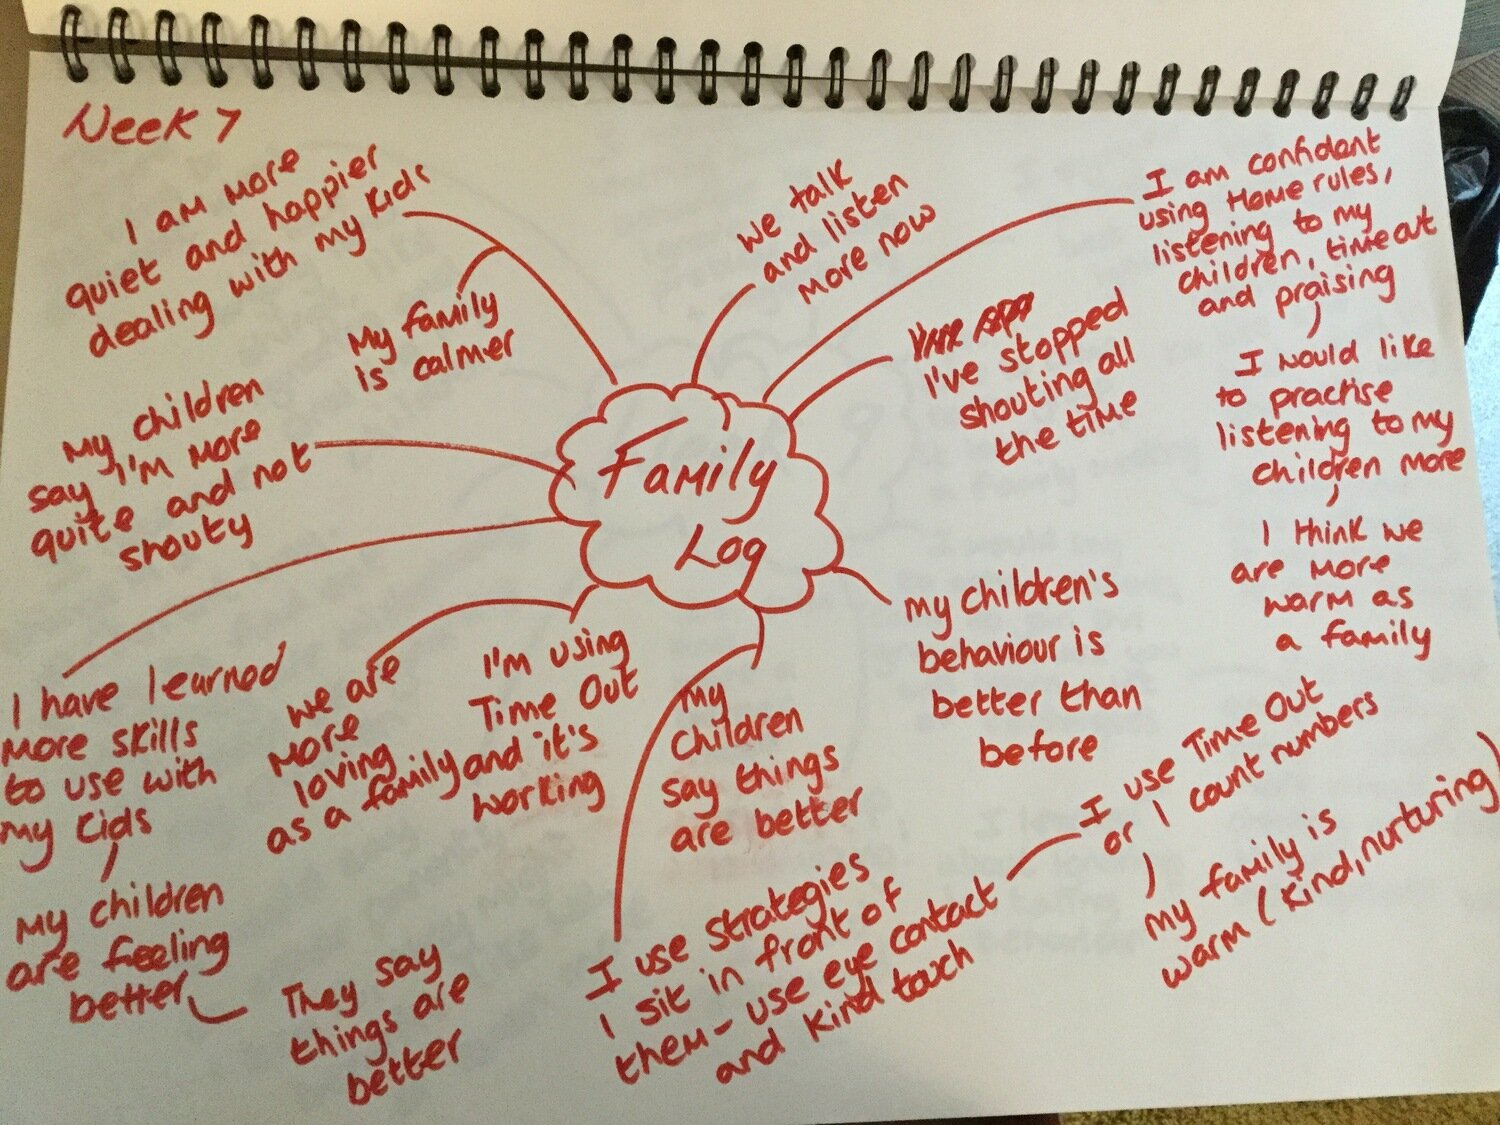 Week 7
I am more
quiet and happier
dealing with my kids
My family
is calmer
My children
say I'm more
quite and not
shouty
I have learned
more skills
to use with
my kids
My children
are feeling
better
They say
things are
better
we are
more
loving
as a family
I'm using
Time Out
and it's
working
Family
Log
My
children
say things
are better
I use strategies
I sit in front of
them - use eye contact
and kind touch
I use Time Out
or I count numbers
my family is
warm (kind, nurturing)
my children's
behaviour is
better than
before
I've stopped
shouting all
the time
we talk
and listen
more now
I am confident
using Home rules,
listening to my
children, time out
and praising
I would like
to practise
listening to my
children more
I think we
are more
warm as
a family